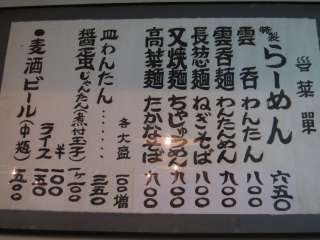 餐菜單
特製 らーめん 六五〇
雲呑 わんたん 七〇〇
雲呑麺 わんためん 八〇〇
長葱麺 ねぎそば 八〇〇
叉焼麺 ちゃしゅうめん 九〇〇
高菜麺 たかなそば 八〇〇
各大盛 一〇〇増
皿わんたん…… 三五〇
醤蛋 じゃんたん(煮付玉子) 一ヶ 一〇〇
ライス 一五〇
半 一〇〇
●麦酒 ビール(中瓶) 五〇〇